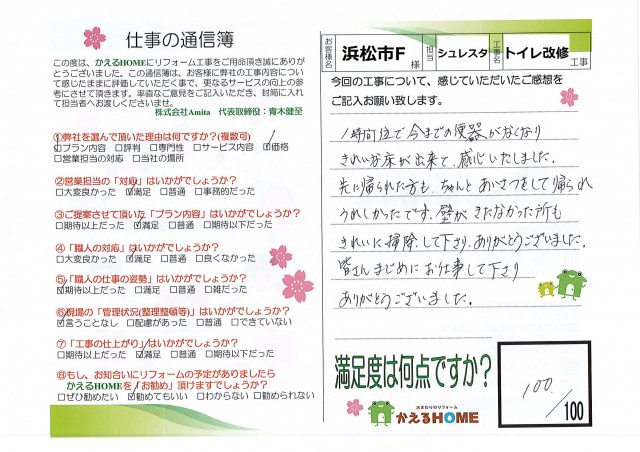 仕事の通信簿
この度は、かえるHOMEにリフォーム工事をご用命頂き誠にありが
とうございました。この通信簿は、お客様に弊社の工事内容につい
て感じたままに評価していただく事で、更なるサービスの向上の参
考にさせて頂きます。率直なご意見をご記入いただき、封筒に入れ
て担当者へお渡しくださいませ。
株式会社Amita 代表取締役：青木健至
①弊社を選んで頂いた理由は何ですか?(複数可)
☑プラン内容 □評判 □専門性 □サービス内容 ☑価格
□営業担当の対応 □当社の場所
②営業担当の「対応」はいかがでしょうか?
□大変良かった ☑満足 □普通 □事務的だった
③ご提案させて頂いた「プラン内容」はいかがでしょうか?
□期待以上だった ☑満足 □普通 □期待以下だった
④「職人の対応」はいかがでしょうか?
□大変良かった ☑満足 □普通 □良くなかった
⑤「職人の仕事の姿勢」はいかがでしょうか?
☑期待以上だった □満足 □普通 □雑だった
⑥現場の「管理状況(整理整頓等)」はいかがでしょうか?
☑言うことなし □配慮があった □普通 □できていない
⑦「工事の仕上がり」はいかがでしょうか?
□期待以上だった ☑満足 □普通 □期待以下だった
⑧もし、お知合いにリフォームの予定がありましたら
かえるHOMEを「お勧め」頂けますでしょうか?
□ぜひ勧めたい ☑勧めてもいい □わからない □勧められない
お客様名 浜松市F 様 担当 シュレスタ 工事名 トイレ改修 工事
今回の工事について、感じていただいたご感想を
ご記入お願い致します。
1時間位で今までの便器がなくなり
きれいな床が出来て、感じいたしました。
先に帰られた方も、ちゃんとあいさつをして帰られ
うれしかったです。壁がきたなかった所も
きれいに掃除して下さり、ありがとうございました。
皆さんまじめにお仕事して下さり
ありがとうございました。
満足度は何点ですか?
100. /100
水まわりのリフォーム
かえるHOME